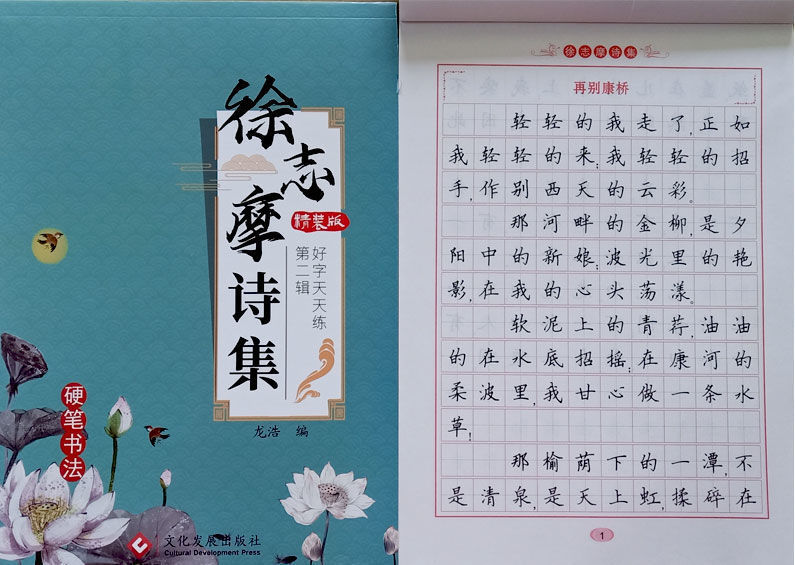 徐志摩诗集
精装版
好字天天练
第二辑
龙浩 编
硬笔书法
文化发展出版社
Cultural Development Press
徐志摩诗集
再别康桥
轻轻的我走了,正如
我轻轻的来;我轻轻的招
手,作别西天的云彩。
那河畔的金柳,是夕
阳中的新娘;波光里的艳
影,在我的心头荡漾。
软泥上的青荇,油油
的在水底招摇;在康河的
柔波里,我甘心做一条水
草!
那榆荫下的一潭,不
是清泉,是天上虹,揉碎在
1